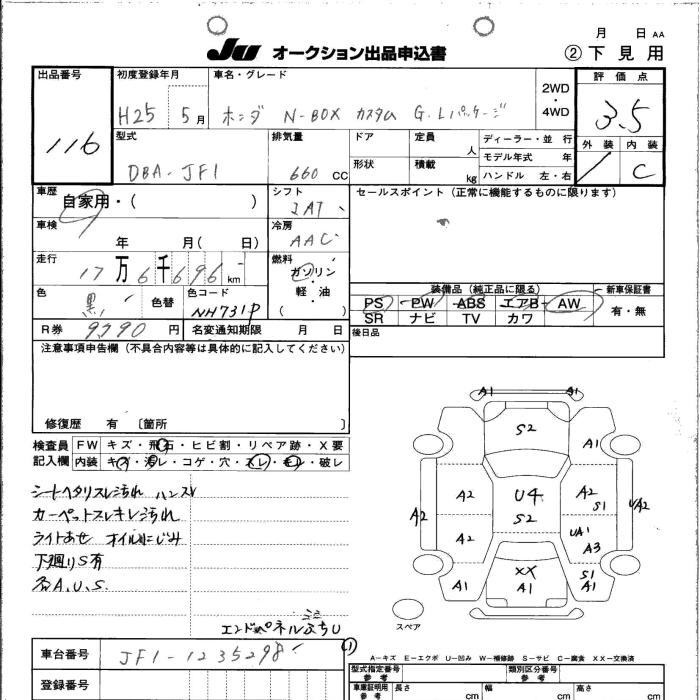 月 日 AA
JU オークション出品申込書 ② 下見用
出品番号 116
初度登録年月 H25 5月
車名・グレード ホンダ N-BOX カスタム G.Lパッケージ
2WD・4WD
評価点 3.5
外装 内装 C
型式 DBA-JF1
排気量 660 CC
ドア 形状
定員 人
積載 kg
ディーラー・並行
モデル年式 年
ハンドル 左・右
車歴 自家用・( )
シフト IAT
セールスポイント(正常に機能するものに限ります)
車検 年 月( 日)
冷房 AAC
走行 17万6千696km
燃料 ガソリン・軽油 ( )
色 黒 色替
色コード NH731P
装備品(純正品に限る)
PS PW ABS エアB AW
SR ナビ TV カワ
新車保証書 有・無
R券 9790円
名変通知期限 月 日
後日品
注意事項申告欄(不具合内容等は具体的に記入してください)
修復歴 有 [箇所 ]
検査員記入欄
FW キズ・飛石・ヒビ割・リペア跡・X要
内装 キズ・汚レ・コゲ・穴・スレ・モレ・破レ
シートヘタリスレ汚れ ハンスレ
カーペットスレキレ汚れ
ライトあせ オイルにじみ
下廻りS有
各A.U.S.
エンドパネルふちU
A1 A1
S2 A1
A2 A2 U4 A2 S1 U/A2
A2 S2 UA1 A3
A1 XX A1 S1 A1
スペア
車台番号 JF1-1235298
登録番号
(1)
A-キズ E-エクボ U-凹み W-補修跡 S-サビ C-腐食 XX-交換済
型式指定番号 参考
類別区分番号 参考
車庫証明用 参考 長さ cm 幅 cm 高さ cm